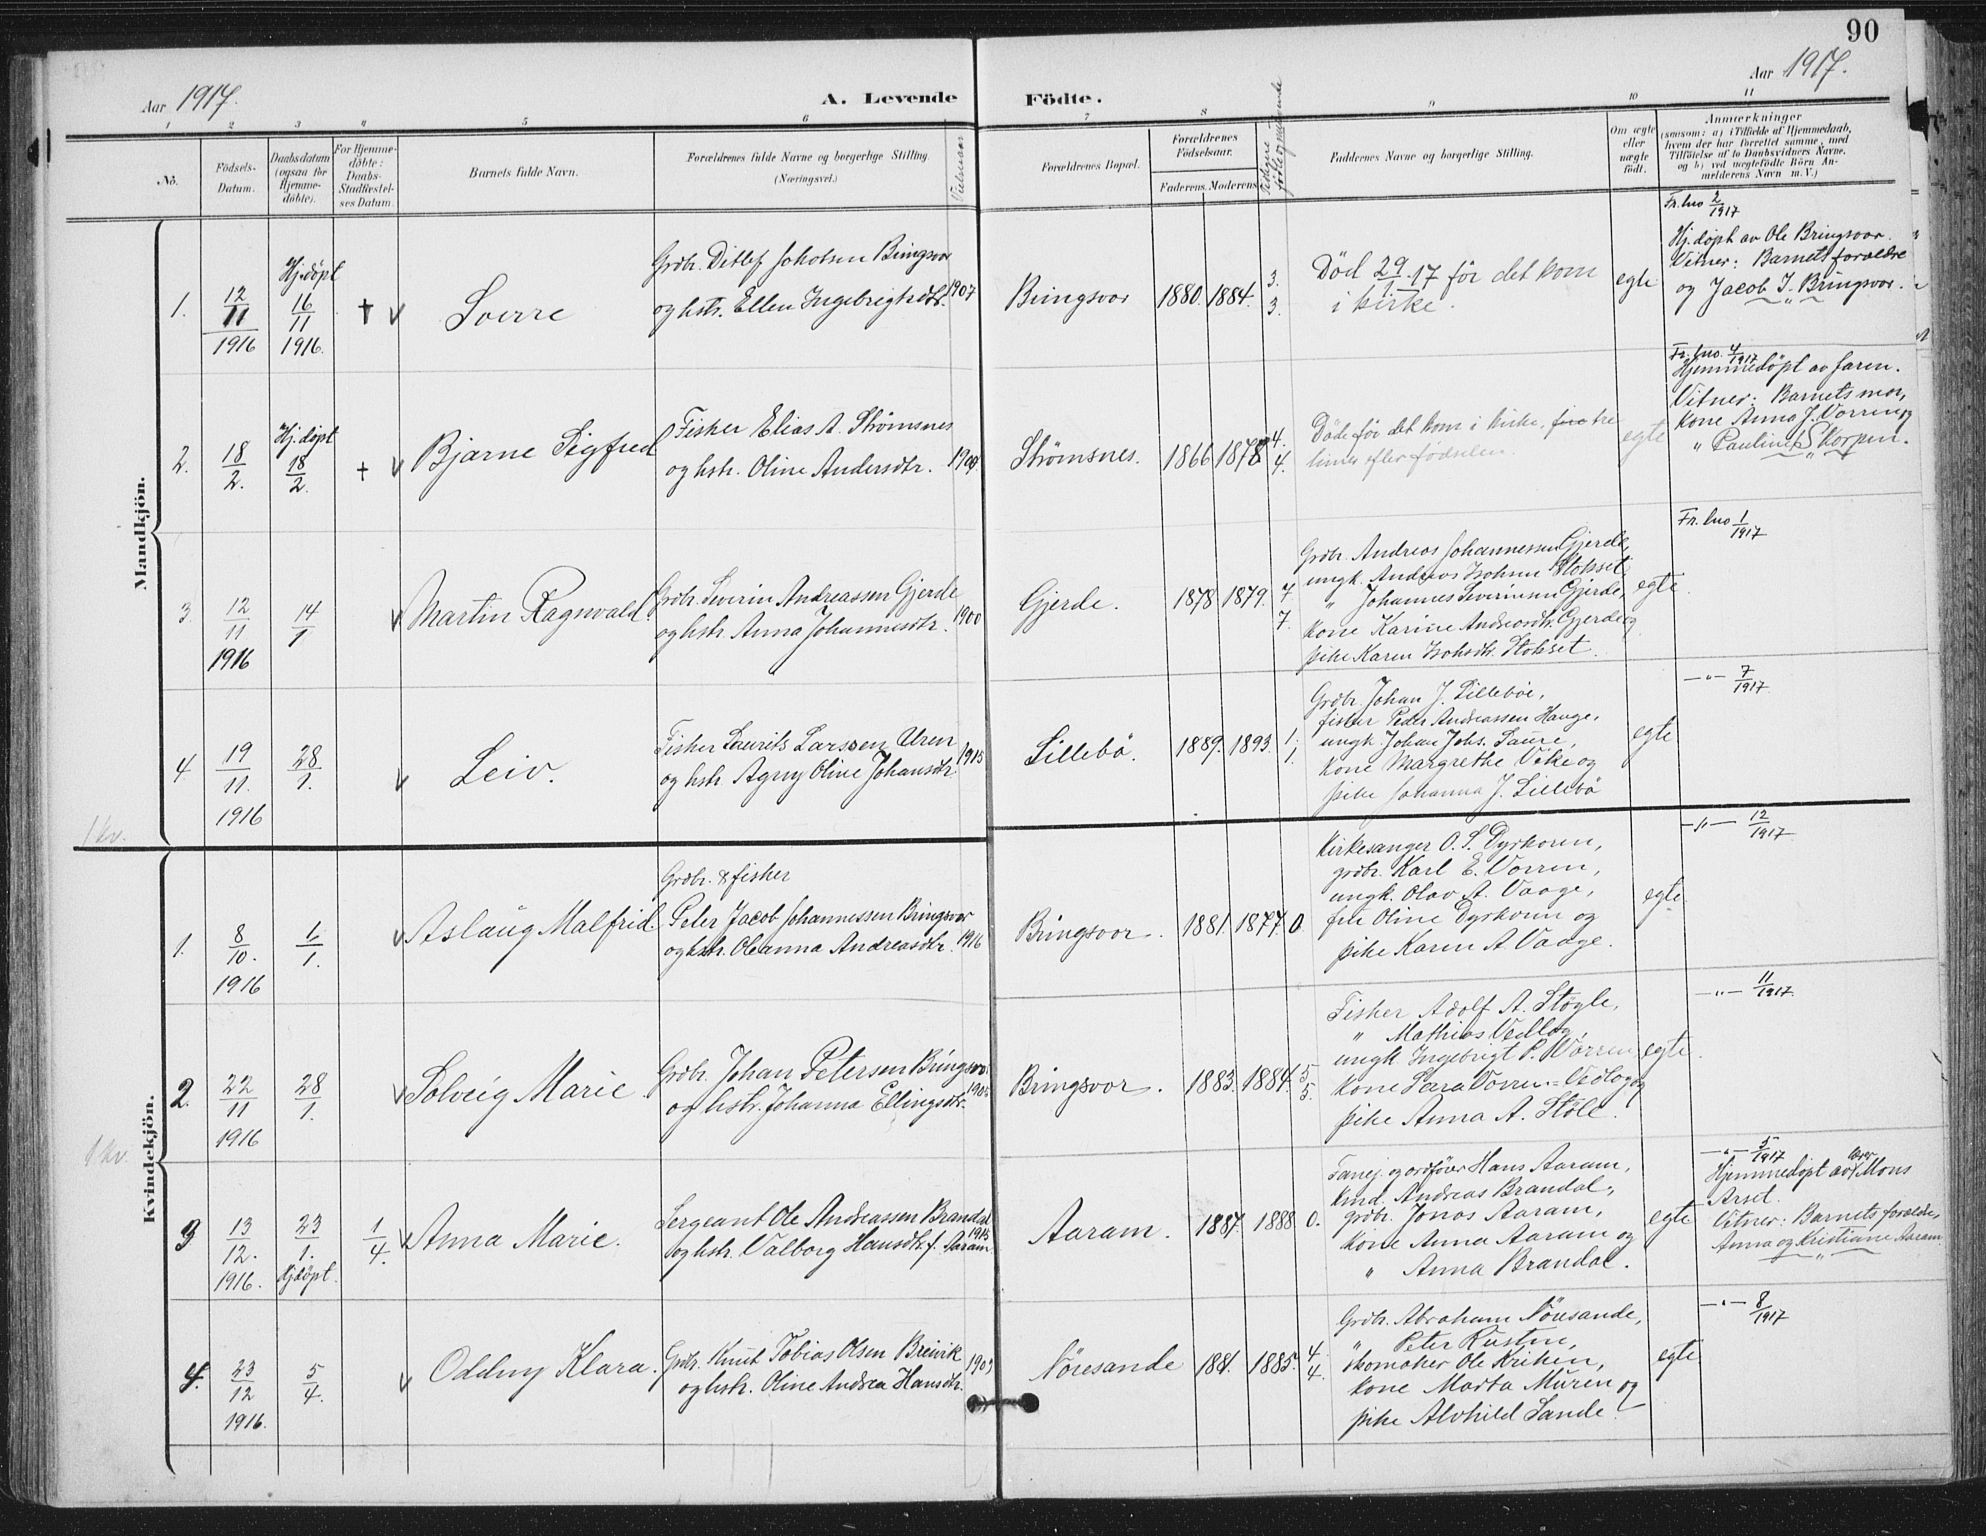 90
Aar 1917.
A. Levende Födte.
Aar 1917.
1 2 3 4 5 6 7 8 9 10 11
No.
Födsels-
Datum.
Daabsdatum
(ogsaa för
Hjemme-
döbte).
For Hjemme-
döbte:
Daabs-
Stadfæstel-
ses Datum.
Barnets fulde Navn.
Forældrenes fulde Navne og borgerlige Stilling
(Næringsvei.)
Vielsesaar
Forældrenes Bopæl.
Forældrenes
Födselsaar.
Faderens. Moderens.
Faddernes Navne og borgerlige Stilling.
Om ægte
eller
uægte
födt.
Anmærkninger
(saasom: a) i Tilfælde af Hjemmedaab,
hvem der har forrettet samme, med
Tilföielse af to Daabsvidners Navne,
og b) ved uægtefödte Börn An-
melderens Navn m. V.)
Mandkjön.
1. 12/11 1916
Hj.døpt
16/11
1916.
† v
Sverre
Grdbr. Ditlef Jakobsen Bringsvor
og hstr. Ellen Ingebrigtsdtr. 1907
Bringsvor 1880. 1884. 3. 3.
Død 29/1 17 før det kom
i kirke.
egte
Fr. lno 2/1917
Hj.døpt av Ole Bringsvor.
Vitner: Barnets forældre
og Jacob J. Bringsvor.
2. 18/2.
Hj. døpt
18/2.
† v
Bjarne Sigfred
Fisker Elias A. Strømsnes
og hstr. Oline Andersdtr.
Strømsnes. 1866 1878 4. 4.
Døde før det kom i kirke, tre
timer efter fødselen.
egte
Fr. lno. 4/1917
Hjemmedøpt av faren.
Vitner: Barnets mor,
kone Anna J. Vorren og
" Pauline Skorpen.
3 12/11 1916
14/1
v
Martin Ragnvald.
Grdbr. Severin Andreassen Gjerde
og hstr. Anna Johannesdtr. 1900
Gjerde. 1878 1879. 7 7.
Grdbr. Andreas Johannessen Gjerde,
ungk. Andreas Isaksen Stokset,
" Johannes Severinsen Gjerde,
kone Karine Andreasdtr. Gjerde og
pike Karen Isaksdtr. Stokset.
egte
Fr. lno 1/1917
4 19/11. 1916
28/1.
v
Leiv.
Fisker Laurits Larssen Uren
og hstr. Agny Oline Johansdtr. 1915
Lillebø. 1889. 1893. 1. 1.
Grdbr. Johan J. Lillebøe,
fisker Peder Andreassen Hauge,
ungk. Johan Johs. Saure,
kone Margrethe Vike og
pike Johanna J. Lillebø
egte
-"- 7/1917
1 kv.
Kvindekjön.
1. 8/10. 1916
1/1.
v
Aslaug Malfrid.
Grdbr. & fisker
Peter Jacob Johannessen Bringsvor
og hstr. Oleanna Andreasdtr. 1916
Bringsvor. 1881. 1877. 0.
Kirkesanger O. S. Dyrkoren,
grdbr. Karl E. Vorren,
ungk. Olav A. Vaage,
frk Oline Dyrkoren og
pike Karen A Vaage.
egte
-"- 12/1917
2. 22/11 1916
28/1.
v
Solveig Marie
Grdbr. Johan Petersen Bringsvor
og hstr. Johanna Ellingsdtr.
Bringsvor. 1883. 1884. 5 5.
Fisker Adolf A. Støyle,
" Mathias Vedlog,
ungk Ingebrigt P. Worren,
kone Sara Vorren = Vedlog og
pike Anna A. Støle.
egte.
-"- 11/1917.
1 kv.
3 13/12. 1916.
23/1.
Hjdøpt.
1/4
v
Anna Marie.
Sergeant Ole Andreassen Brandal
og hstr. Valborg Hansdtr. f. Aaram. 1915
Aaram. 1887. 1888 0.
Lansj. og ordfører Hans Aaram,
kmd. Andreas Brandal,
grdbr. Jonas Aaram,
kone Anna Aaram og
" Anna Brandal.
egte
-"- 5/1917
Hjemmedøpt av Mons
Arset.
Vitner: Barnets forældre,
Anna og Kristiane Aaram.
4. 23/12 1916.
5/4.
v
Oddny Klara.
Grdbr. Knut Tobias Olsen Breivik
og hstr. Oline Andrea Hansdtr.
Nøresande 1881. 1885. 4. 4.
Grdbr. Abraham Nøresande,
" Peter Rusten,
skomaker Ole Kriken,
kone Marta Muren og
pike Alvhild Sande.
egte
-"- 8/1917